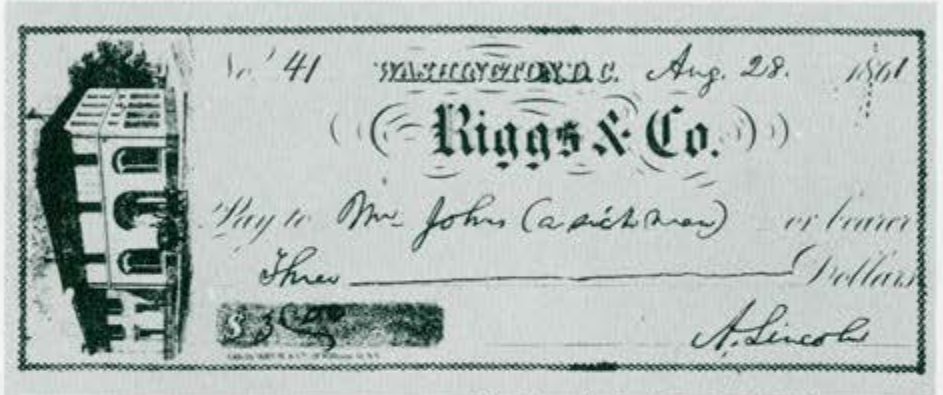 No. 41 WASHINGTON, D.C. Aug. 28. 1861
Riggs & Co.
Pay to Mr Johns (a sick man) or bearer
Three Dollars
$ 3
A. Lincoln